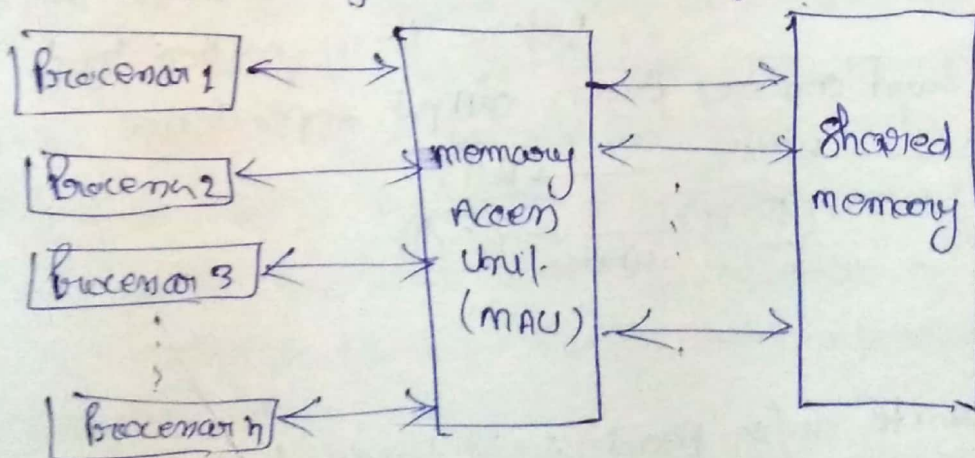 Processor 1
Processor 2
Processor 3
Processor n
memory
Access
Unit
(MAU)
Shared
memory